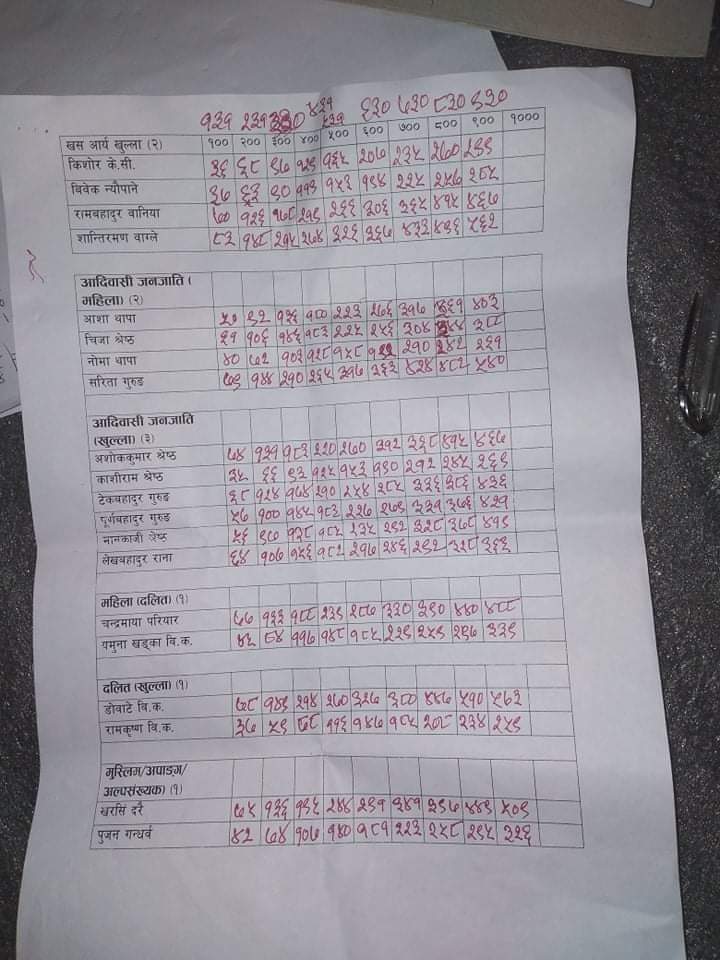 १३१ २३१ ३३० ४३१ ५३१ ६३० ७३० ८३० ९३०
खस आर्य खुल्ला (२) १०० २०० ३०० ४०० ५०० ६०० ७०० ८०० ९०० १०००
किशोर के.सी. ३६ ६८ ९७ १२९ १६५ २०७ २३५ २६० २९९
विवेक न्यौपाने ३७ ६३ ९० ११३ १५३ १९४ २२५ २५७ २८५
रामबहादुर बानिया ७० १२६ १७८ २१९ २६६ ३०६ ३६५ ४१५ ४६७
शान्तिरमण वाग्ले ८३ १४८ २१५ २७४ ३२६ ३६७ ४३३ ४९६ ५६२
आदिवासी जनजाति (
महिला) (२)
आशा थापा ५१ ९२ १३६ १८० २२३ २७६ ३१७ ३६१ ४०३
चिजा श्रेष्ठ ६१ १०६ १४६ १८३ २२५ २५६ ३०४ ३४४ ३८८
नोमा थापा ४० ७२ १०३ १२८ १५८ १९२ २१० २४२ २६१
सरिता गुरुङ ७९ १४४ २१० २६५ ३१७ ३६३ ४२४ ४८२ ५४०
आदिवासी जनजाति
(खुल्ला) (३)
अशोककुमार श्रेष्ठ ७४ १३१ १८३ २२० २७० ३१२ ३६८ ४१५ ४६७
काशीराम श्रेष्ठ ३५ ६६ ९३ १२५ १५३ १९० २१२ २४५ २६९
टेकबहादुर गुरुङ ६८ १२४ १७४ २१० २५४ २८५ ३३६ ३८६ ४३६
पूर्णबहादुर गुरुङ ५७ १०० १४५ १८३ २२७ २७९ ३३१ ३७६ ४२१
मानकाजी श्रेष्ठ ५६ ९७ १३८ १८५ २३५ २९२ ३२८ ३७८ ४१९
लेखबहादुर राना ६४ १०७ १५६ १८२ २१७ २४६ २९२ ३२८ ३६३
महिला (दलित) (१)
चन्द्रमाया परियार ७७ १३३ १८८ २३९ २८७ ३३० ३९० ४४० ४८८
यमुना खड्का वि.क. ८४ ११७ १४८ १८५ २२९ २५९ २९७ ३३९
दलित (खुल्ला) (१)
डोवाटे वि.क. ७८ १४९ २१४ २७० ३२७ ३८० ४४७ ५१० ५७३
रामकृष्ण वि.क. ३७ ५९ ७८ ११६ १४७ १८५ २०८ २३४ २५९
मुस्लिम/अपाङ्ग/
अल्पसंख्यक) (१)
खरसि दरै ७५ १३६ १९५ २४४ २९१ ३४१ ३९७ ४४९ ५०९
पुजन गन्धर्व ४२ ७४ १०७ १४० १८१ २२३ २५८ २९५ ३२६